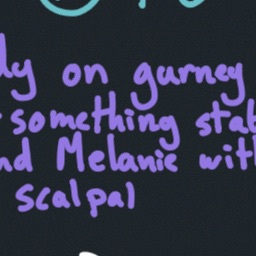 dy on gurney
something stab
nd Melanie with
scalpal